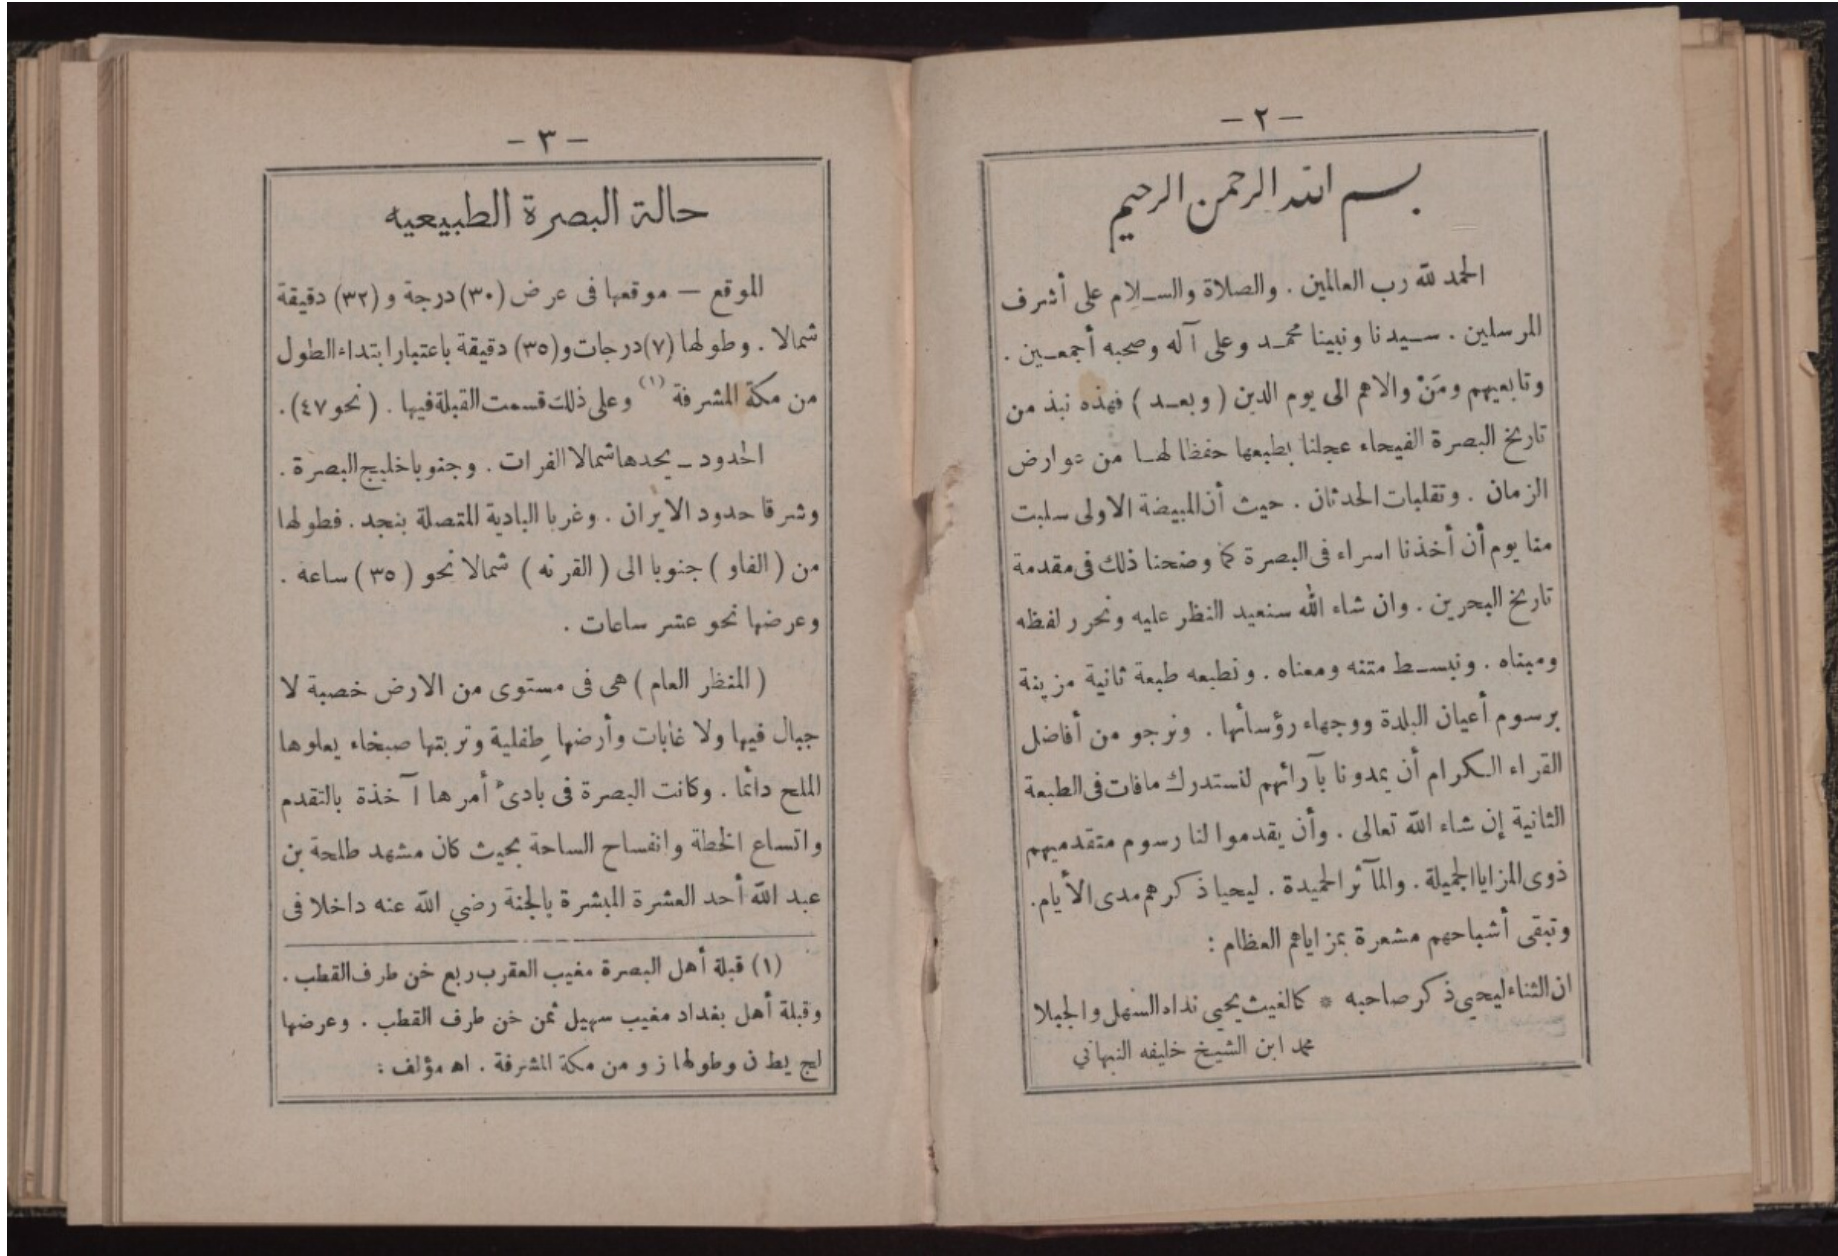 — ٢ —
بسم الله الرحمن الرحيم
الحمد لله رب العالمين . والصلاة والسلام على أشرف
المرسلين . سيدنا ونبينا محمد وعلى آله وصحبه أجمعين .
وتابعيهم ومَنْ والاهم الى يوم الدين ( وبعد ) فهذه نبذ من
تاريخ البصرة الفيحاء عجلنا بطبعها حفظا لها من عوارض
الزمان . وتقلبات الحدثان . حيث أن المبيضة الاولى سلبت
منا يوم أن أخذنا اسراء فى البصرة كما وضحنا ذلك فى مقدمة
تاريخ البحرين . وان شاء الله سنعيد النظر عليه ونحرر لفظه
ومبناه . ونبسط متنه ومعناه . ونطبعه طبعة ثانية مزينة
برسوم أعيان البلدة ووجهاء رؤسائها . ونرجو من أفاضل
القراء الكرام أن يمدونا بآرائهم لنستدرك مافات فى الطبعة
الثانية إن شاء الله تعالى . وأن يقدموا لنا رسوم متقدميهم
ذوى المزايا الجميلة . والمآثر الحميدة . ليحيا ذكرهم مدى الأيام .
وتبقى أشباحهم مشعرة بمزاياهم العظام :
ان الثناء ليحيي ذكر صاحبه * كالغيث يحيي نداه السهل والجبلا
محمد ابن الشيخ خليفه النبهاني
— ٣ —
حالة البصرة الطبيعيه
الموقع — موقعها فى عرض (٣٠) درجة و (٣٢) دقيقة
شمالا . وطولها (٧) درجات و(٣٥) دقيقة باعتبار ابتداء الطول
من مكة المشرفة (١) وعلى ذلك قسمت القبلة فيها . ( نحو ٤٧) .
الحدود — يحدها شمالا الفرات . وجنوبا خليج البصرة .
وشرقا حدود الايران . وغربا البادية المتصلة بنجد . فطولها
من ( الفاو ) جنوبا الى ( القرنه ) شمالا نحو ( ٣٥ ) ساعه .
وعرضها نحو عشر ساعات .
( المنظر العام ) هى فى مستوى من الارض خصبة لا
جبال فيها ولا غابات وأرضها طِفلية وتربتها صبخاء يعلوها
الملح دائما . وكانت البصرة فى بادئ أمرها آخذة بالتقدم
واتساع الخطة وانفساح الساحة بحيث كان مشهد طلحة بن
عبد الله أحد العشرة المبشرة بالجنة رضي الله عنه داخلا فى
(١) قبلة أهل البصرة مغيب العقرب ربع خن طرف القطب .
وقبلة أهل بغداد مغيب سهيل ثمن خن طرف القطب . وعرضها
لج يط ن وطولها ز و من مكة المشرفة . اه مؤلف :